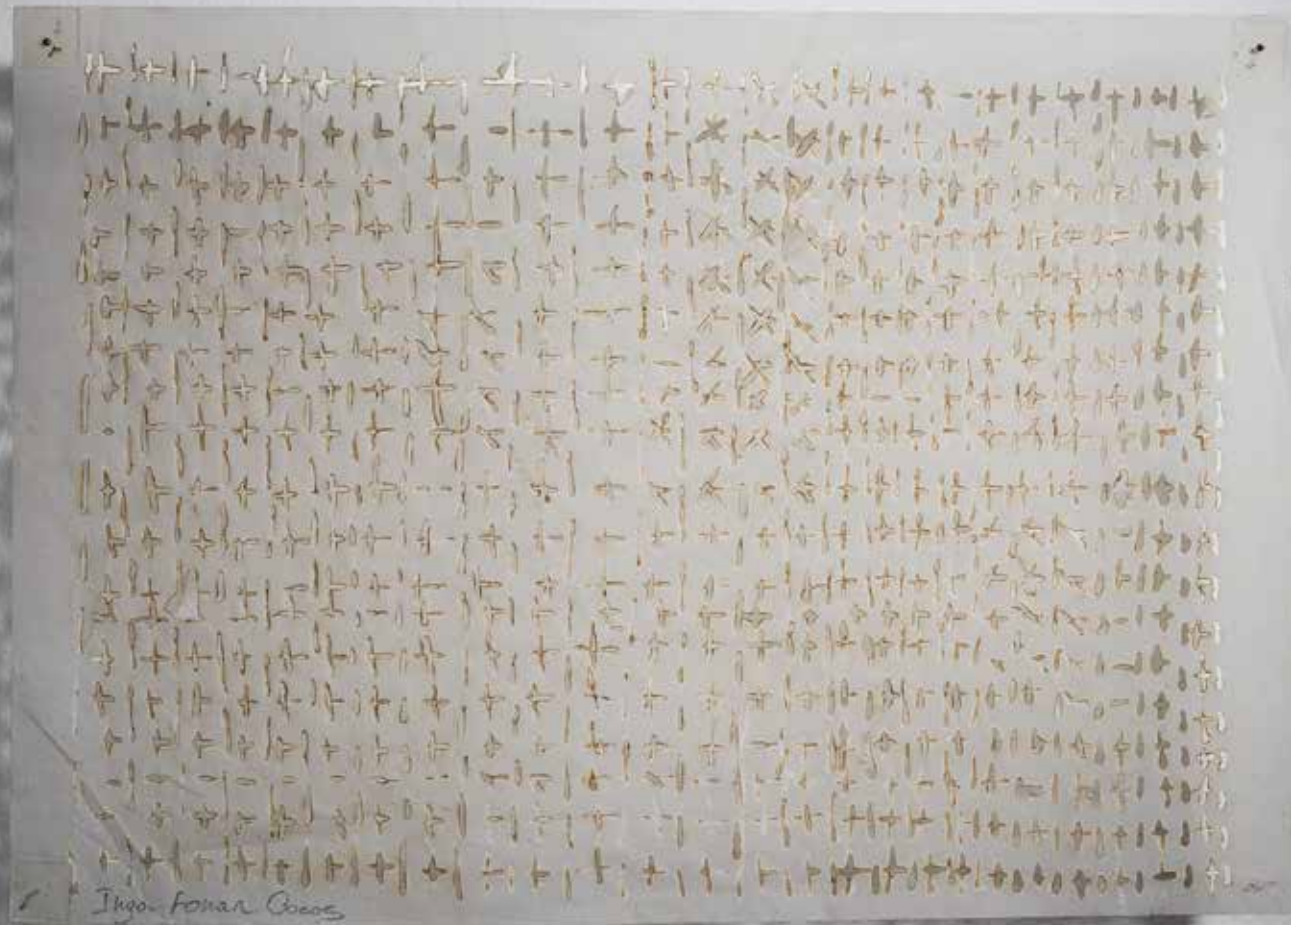 Inga Fonar Cocos